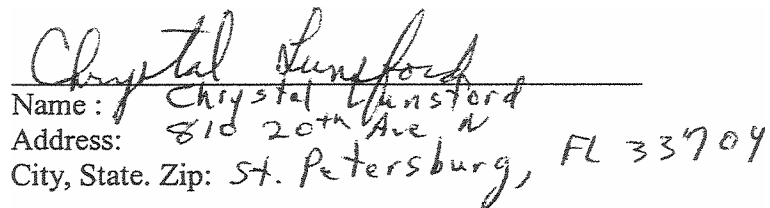 Chrystal Lunsford
Name : Chrystal Lunsford
Address: 810 20th Ave N
City, State. Zip: St. Petersburg, FL 33704